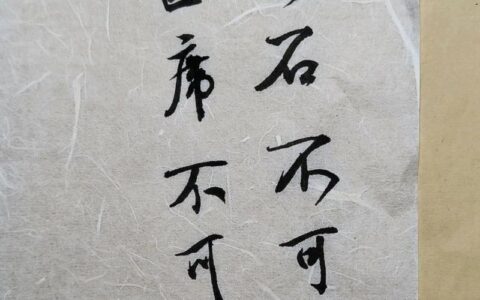 石不可
席不可